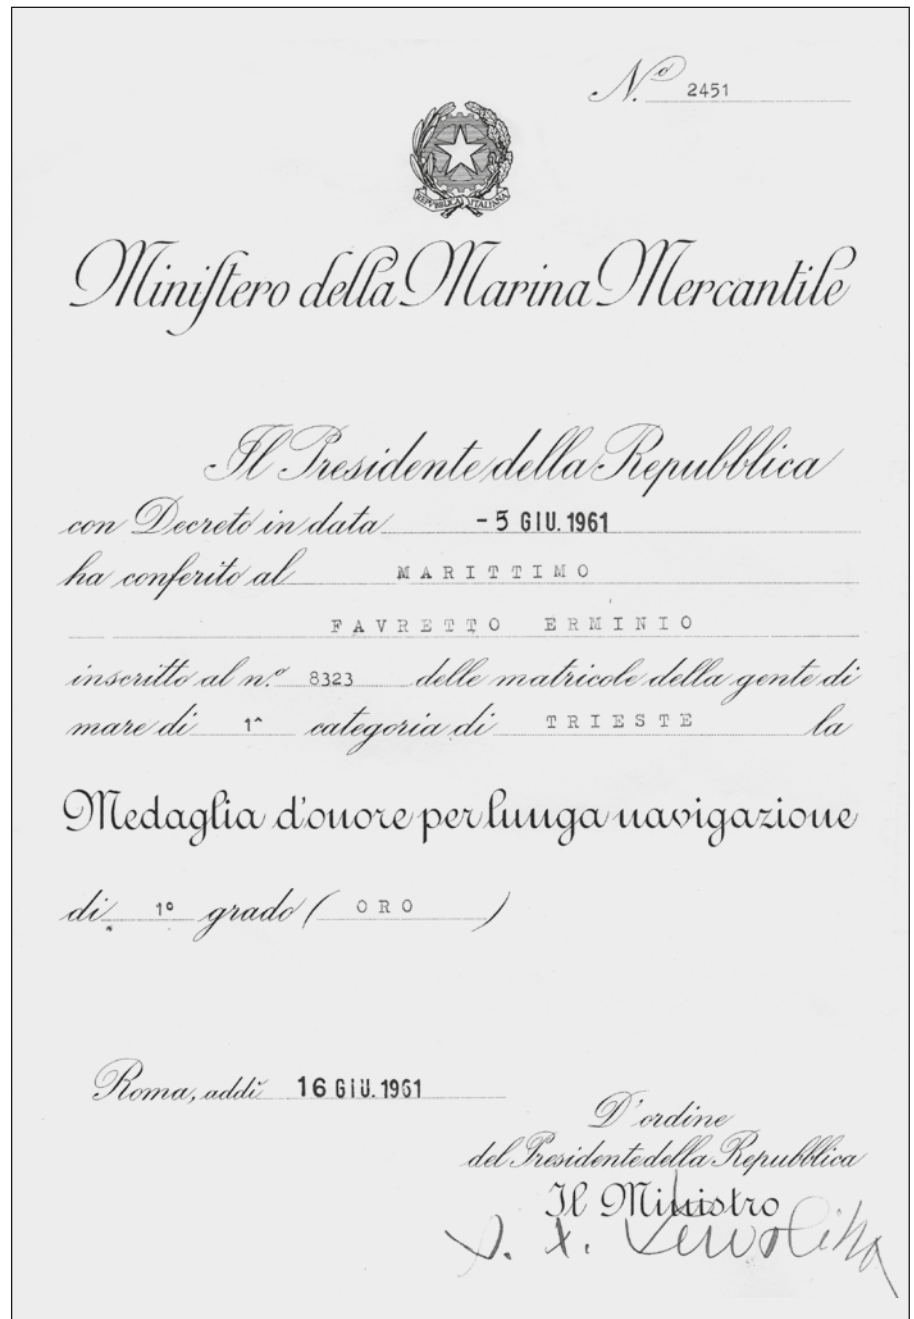 N.º 2451
REPVBBLICA ITALIANA
Ministero della Marina Mercantile
Il Presidente della Repubblica
con Decreto in data - 5 GIU. 1961
ha conferito al MARITTIMO
FAVRETTO ERMINIO
inscritto al n.º 8323 delle matricole della gente di
mare di 1^ categoria di TRIESTE la
Medaglia d'onore per lunga navigazione
di 1º grado ( ORO )
Roma, addì 16 GIU. 1961
D'ordine
del Presidente della Repubblica
Il Ministro